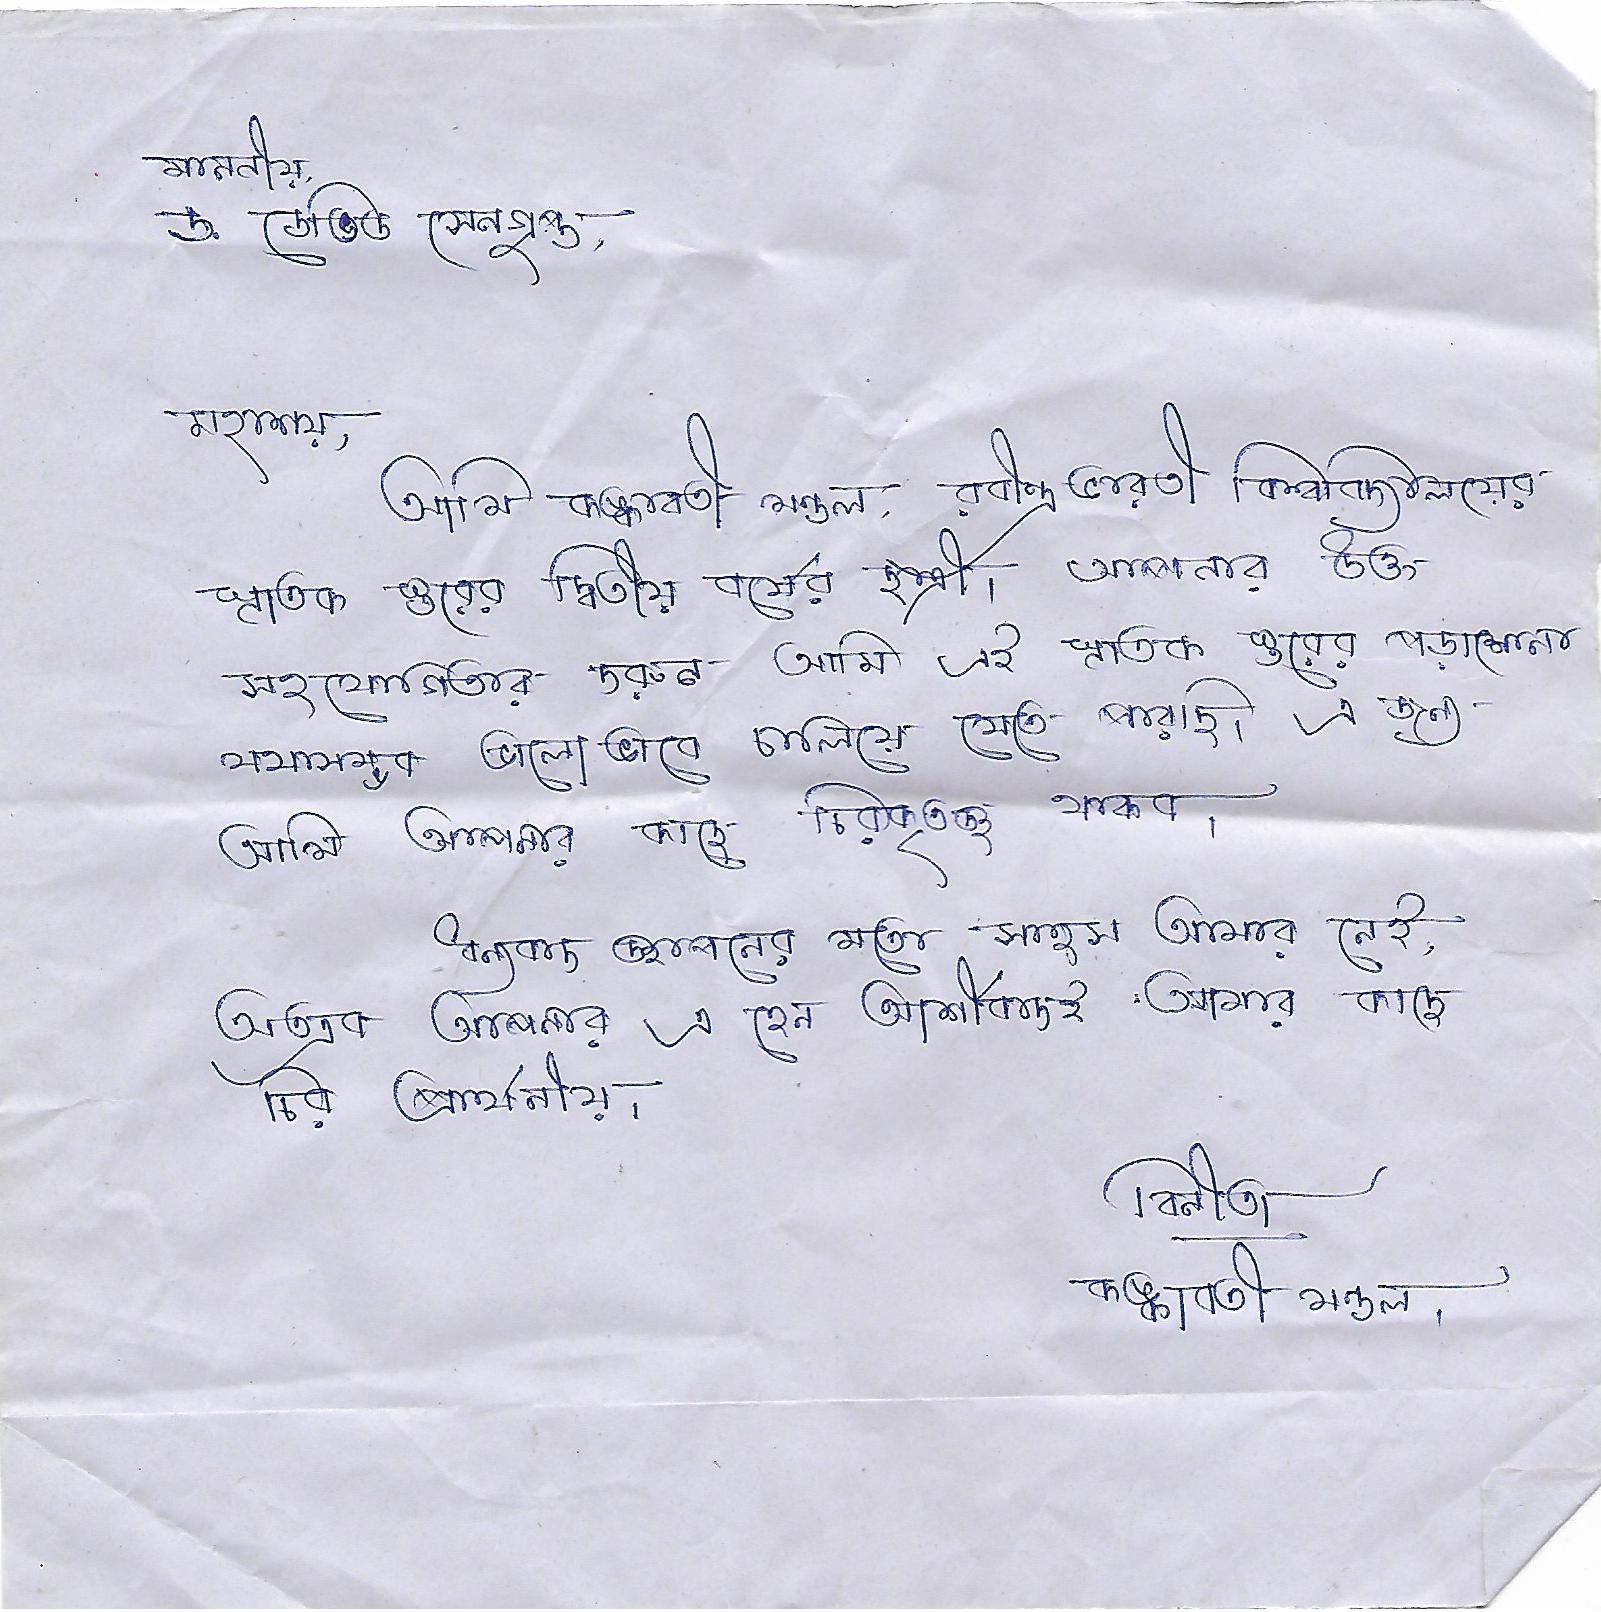 মাননীয়,
ড. ডেভিড সেনগুপ্ত,
মহাশয়,
আমি কঙ্কাবতী মন্ডল, রবীন্দ্রভারতী বিশ্ববিদ্যালয়ের
স্নাতক স্তরের দ্বিতীয় বর্ষের ছাত্রী। আপনার উক্ত
সহযোগিতার দরুন আমি এই স্নাতক স্তরের পড়াশোনা
যথাসম্ভব ভালোভাবে চালিয়ে যেতে পারছি। এ জন্য
আমি আপনার কাছে চিরকৃতজ্ঞ থাকব।
ধন্যবাদ জ্ঞাপনের মতো সাহস আমার নেই,
অতএব আপনার এ হেন আশীর্বাদই আমার কাছে
চির প্রার্থনীয়।
বিনীতা
কঙ্কাবতী মন্ডল।